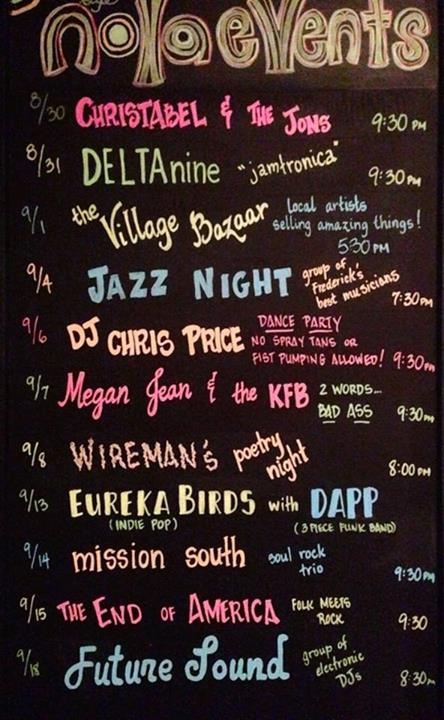 nola events
8/30 CHRISTABEL & THE JONS 9:30 PM
8/31 DELTAnine "jamtronica" 9:30 PM
9/1 the Village Bazaar local artists
selling amazing things!
530 PM
9/4 JAZZ NIGHT group of
Frederick's
best musicians
7:30 PM
9/6 DJ CHRIS PRICE DANCE PARTY
NO SPRAY TANS OR
FIST PUMPING ALLOWED! 9:30 PM
9/7 Megan Jean & the KFB 2 WORDS...
BAD ASS 9:30 PM
9/8 WIREMAN'S poetry
night
8:00 PM
9/13 EUREKA BIRDS with DAPP
(INDIE POP) (3 PIECE FUNK BAND)
9/14 mission south soul rock
trio
9:30 PM
9/15 THE END OF AMERICA FOLK MEETS
ROCK 9:30
9/18 Future Sound group of
electronic
DJs 8:30 PM